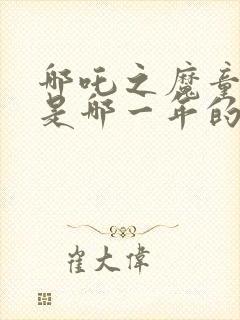 哪吒之魔童
是哪一年的
崔大偉